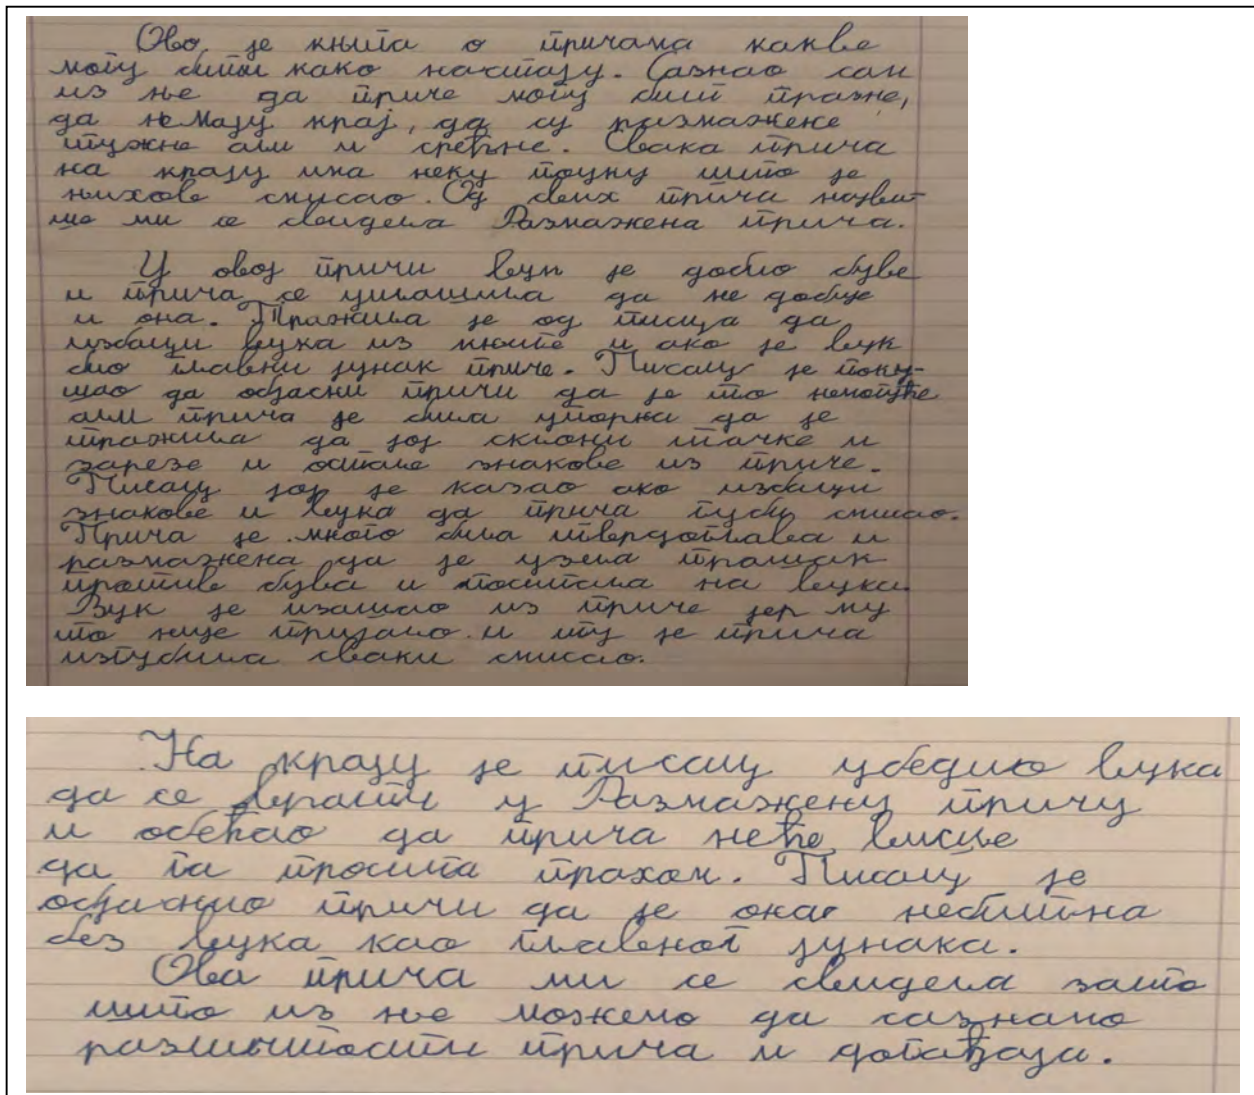 Ово је књига о причама какве
могу бити како настају. Сазнао сам
из ње да приче могу бит празне,
да немају крај, да су размажене
тужне али и срећне. Свака прича
на крају има неку поуку што је
њихове смисао. Од свих прича највит-
ше ми се свидела Размажена прича.
У овој причи вук је добио буве
и прича се уплашила да не добије
и она. Тражила је од писца да
избаци вука из књиге и ако је вук
био главни јунак приче. Писац је поку-
шао да објасни причи да је то немогуће
али прича је била упорна да је
тражила да јој склони тачке и
зарезе и остале знакове из приче.
Писац јој је казао ако избаци
знакове и вука да прича губи смисао.
Прича је много била тврдоглава и
размажена да је узела прашак
против бува и посипала на вука.
Вук је изашао из приче јер му
то није пријало и ту је прича
изгубила сваки смисао.
На крају је писац убедио вука
да се врати у Размажену причу
и обећао да прича неће више
да га просипа прахом. Писац је
објаснио причи да је она небитна
без вука као главног јунака.
Ова прича ми се свидела зато
што из ње можемо да сазнамо
различитости прича и догађаја.